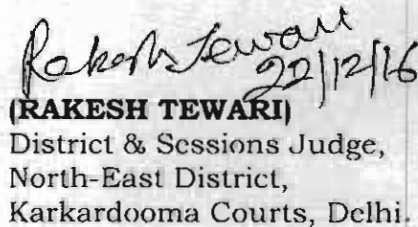 Rakesh Tewari
22/12/16
(RAKESH TEWARI)
District & Sessions Judge,
North-East District,
Karkardooma Courts, Delhi.